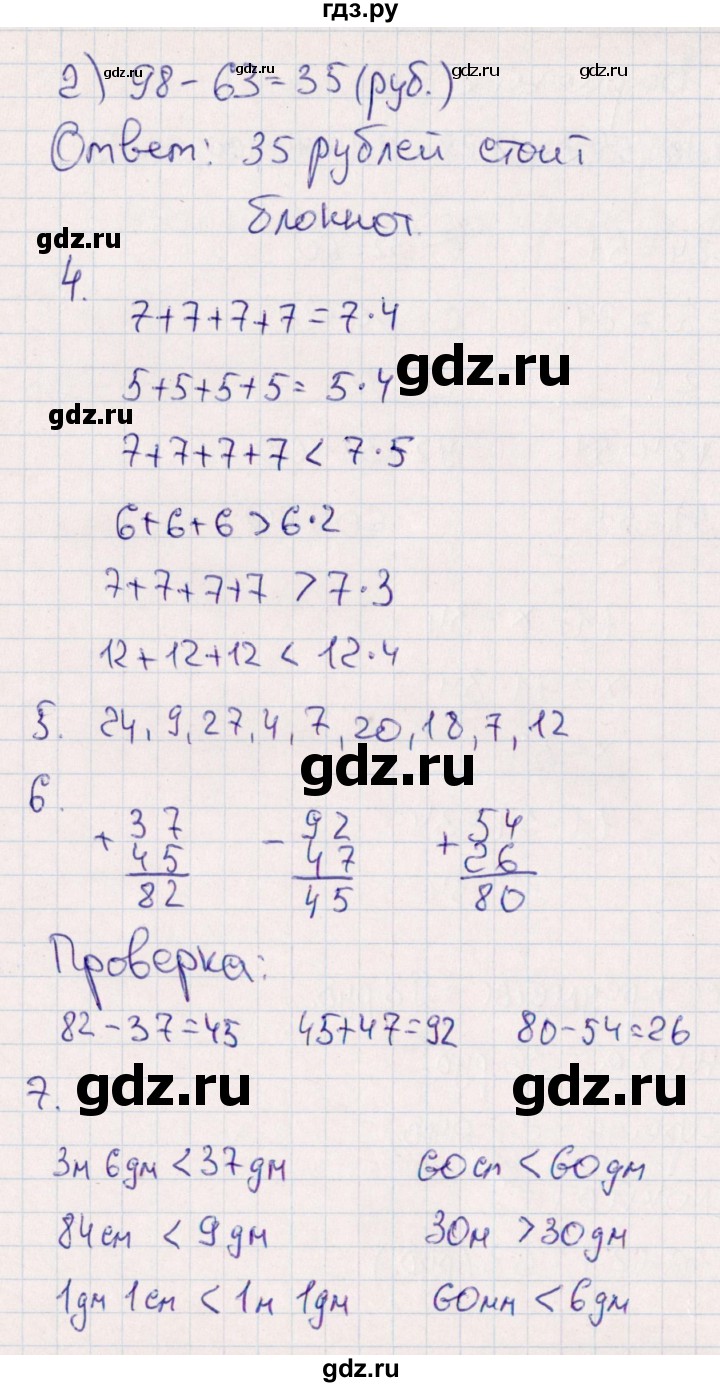 гдз.ру
2) 98 - 63 = 35 (руб.)
gdz.ru gdz.ru gdz.ru gdz.ru
Ответ: 35 рублей стоит
блокнот.
gdz.ru
4.
7+7+7+7 = 7·4
gdz.ru
5+5+5+5 = 5·4
gdz.ru
7+7+7+7 < 7·5
6+6+6 > 6·2
7+7+7+7 > 7·3
12+12+12 < 12·4
5. 24, 9, 27, 4, 7, 20, 18, 7, 12
gdz.ru
6.
+ 37 - 92 + 54
45 47 26
82 45 80
Проверка:
82-37=45 45+47=92 80-54=26
7.
gdz.ru gdz.ru
3м 6дм < 37дм 60см < 60дм
84см < 9дм 30м > 30дм
1дм 1см < 1м 1дм 60мм < 6дм
gdz.ru